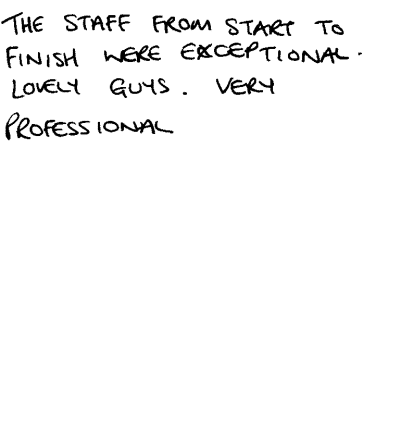 THE STAFF FROM START TO
FINISH WERE EXCEPTIONAL.
LOVELY GUYS. VERY
PROFESSIONAL